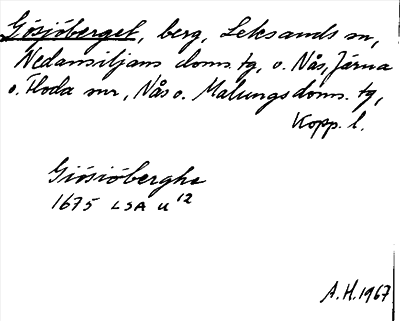 Gösjöberget, berg, Leksands sn,
Nedansiljans doms. tg, o. Nås, Järna
o. Floda snr, Nås o. Malungs doms. tg,
Kopp. l.
Giösiöberghe
1675 LSA U 12
A.H. 1967